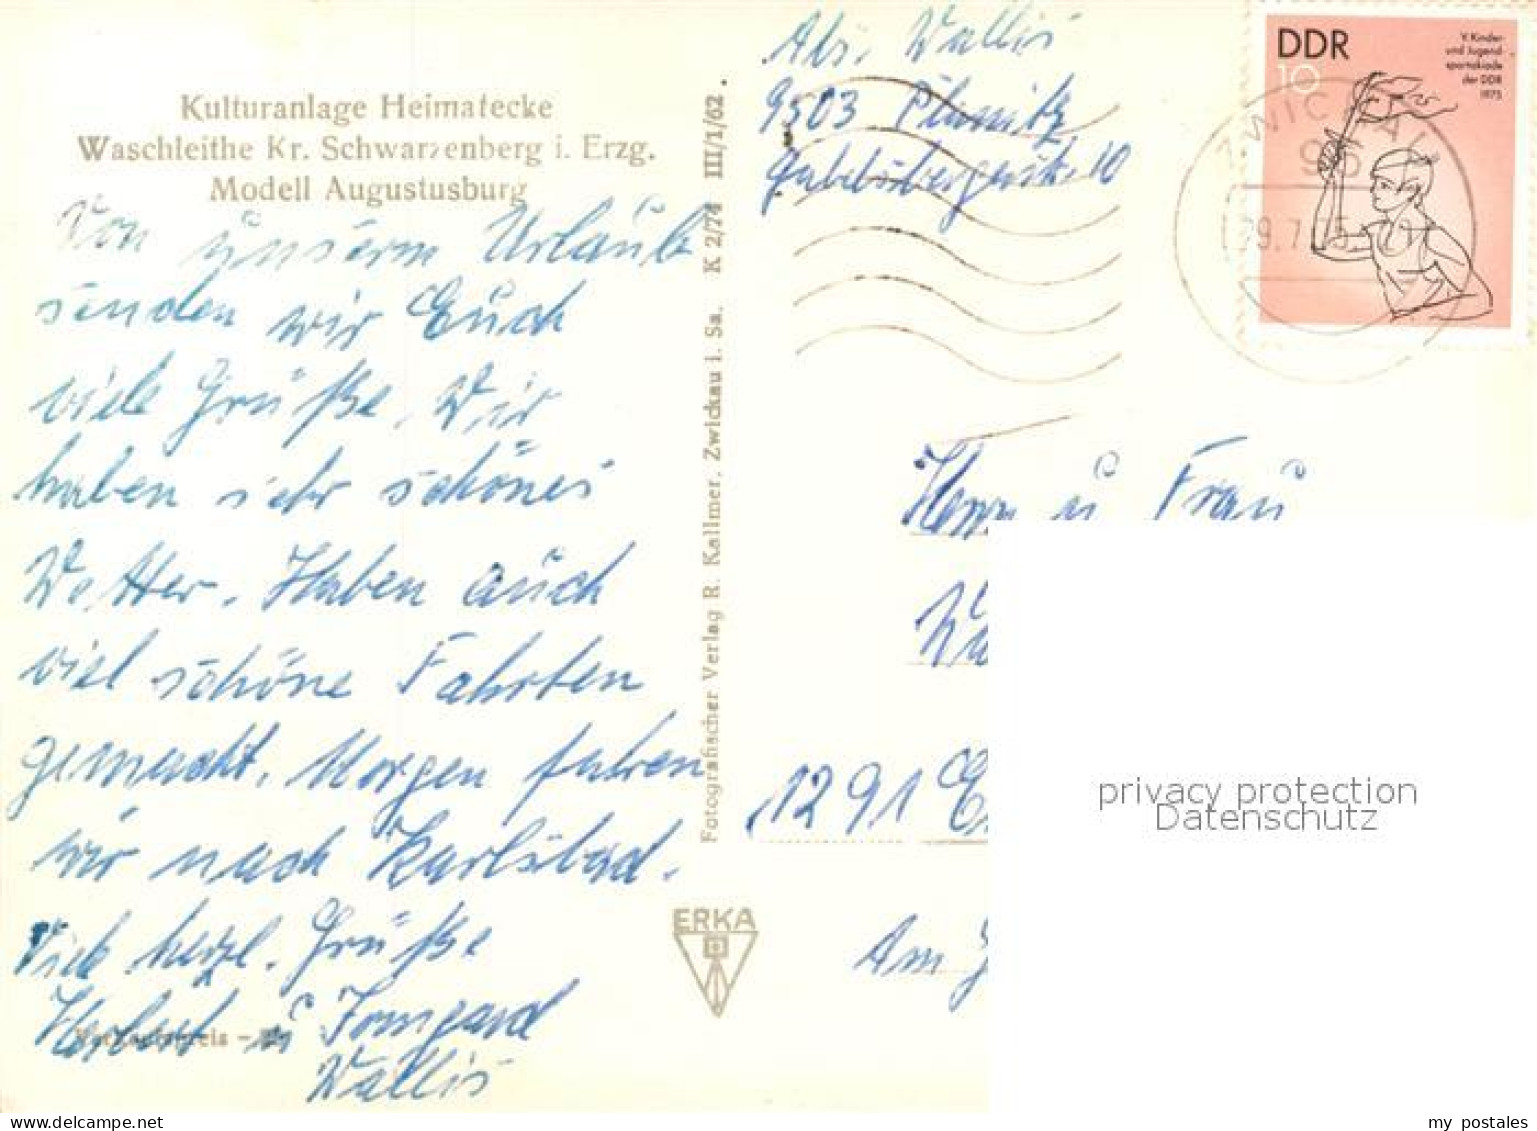 Kulturanlage Heimatecke
Waschleithe Kr. Schwarzenberg i. Erzg.
Modell Augustusburg
Von unserm Urlaub
senden wir Euch
viele Grüße. Wir
haben sehr schönes
Wetter. Haben auch
viel schöne Fahrten
gemacht. Morgen fahren
wir nach Karlsbad.
Viele herzl. Grüße
Herbert u Irmgard
Wallis
Verkaufspreis
Fotografischer Verlag R. Kallmer, Zwickau i. Sa. K 2/74 III/1/62
ERKA
Abs. Wallis
9503 Planitz
10
DDR
10
V. Kinder-
und Jugend-
spartakiade
der DDR
1975
ZWICKAU
95
29.7.75
Herrn u Frau
1291
Am
privacy protection
Datenschutz
my postales